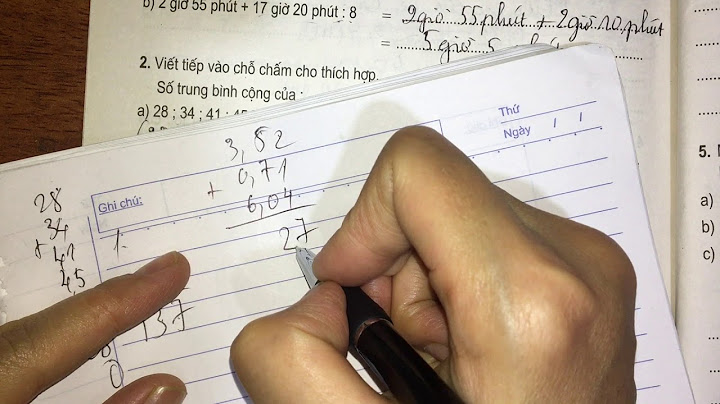 b) 2 giờ 55 phút + 17 giờ 20 phút : 8
= 2 giờ 55 phút + 2 giờ 10 phút
= 5 giờ 5
2. Viết tiếp vào chỗ chấm cho thích hợp.
Số trung bình cộng của :
a) 28 ; 34 ; 41 ;
Thứ
Ngày / /
Ghi chú:
3,52
+ 0,71
6,04
27
28
34
+ 41
45
137
0
5.
a)
b)
c)